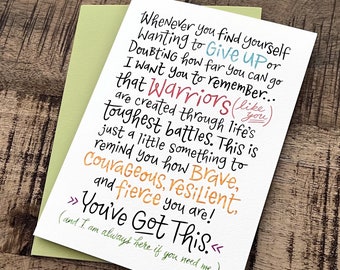 Whenever you find yourself
wanting to GIVE UP or
Doubting how far you can go
I want you to remember...
that WARRIORS (like you)
are created through life's
toughest battles. This is
just a little something to
remind you how BRAVE,
COURAGEOUS, RESILIENT,
and fierce you are!
» You've Got This. «
(and I am always here if you need me)